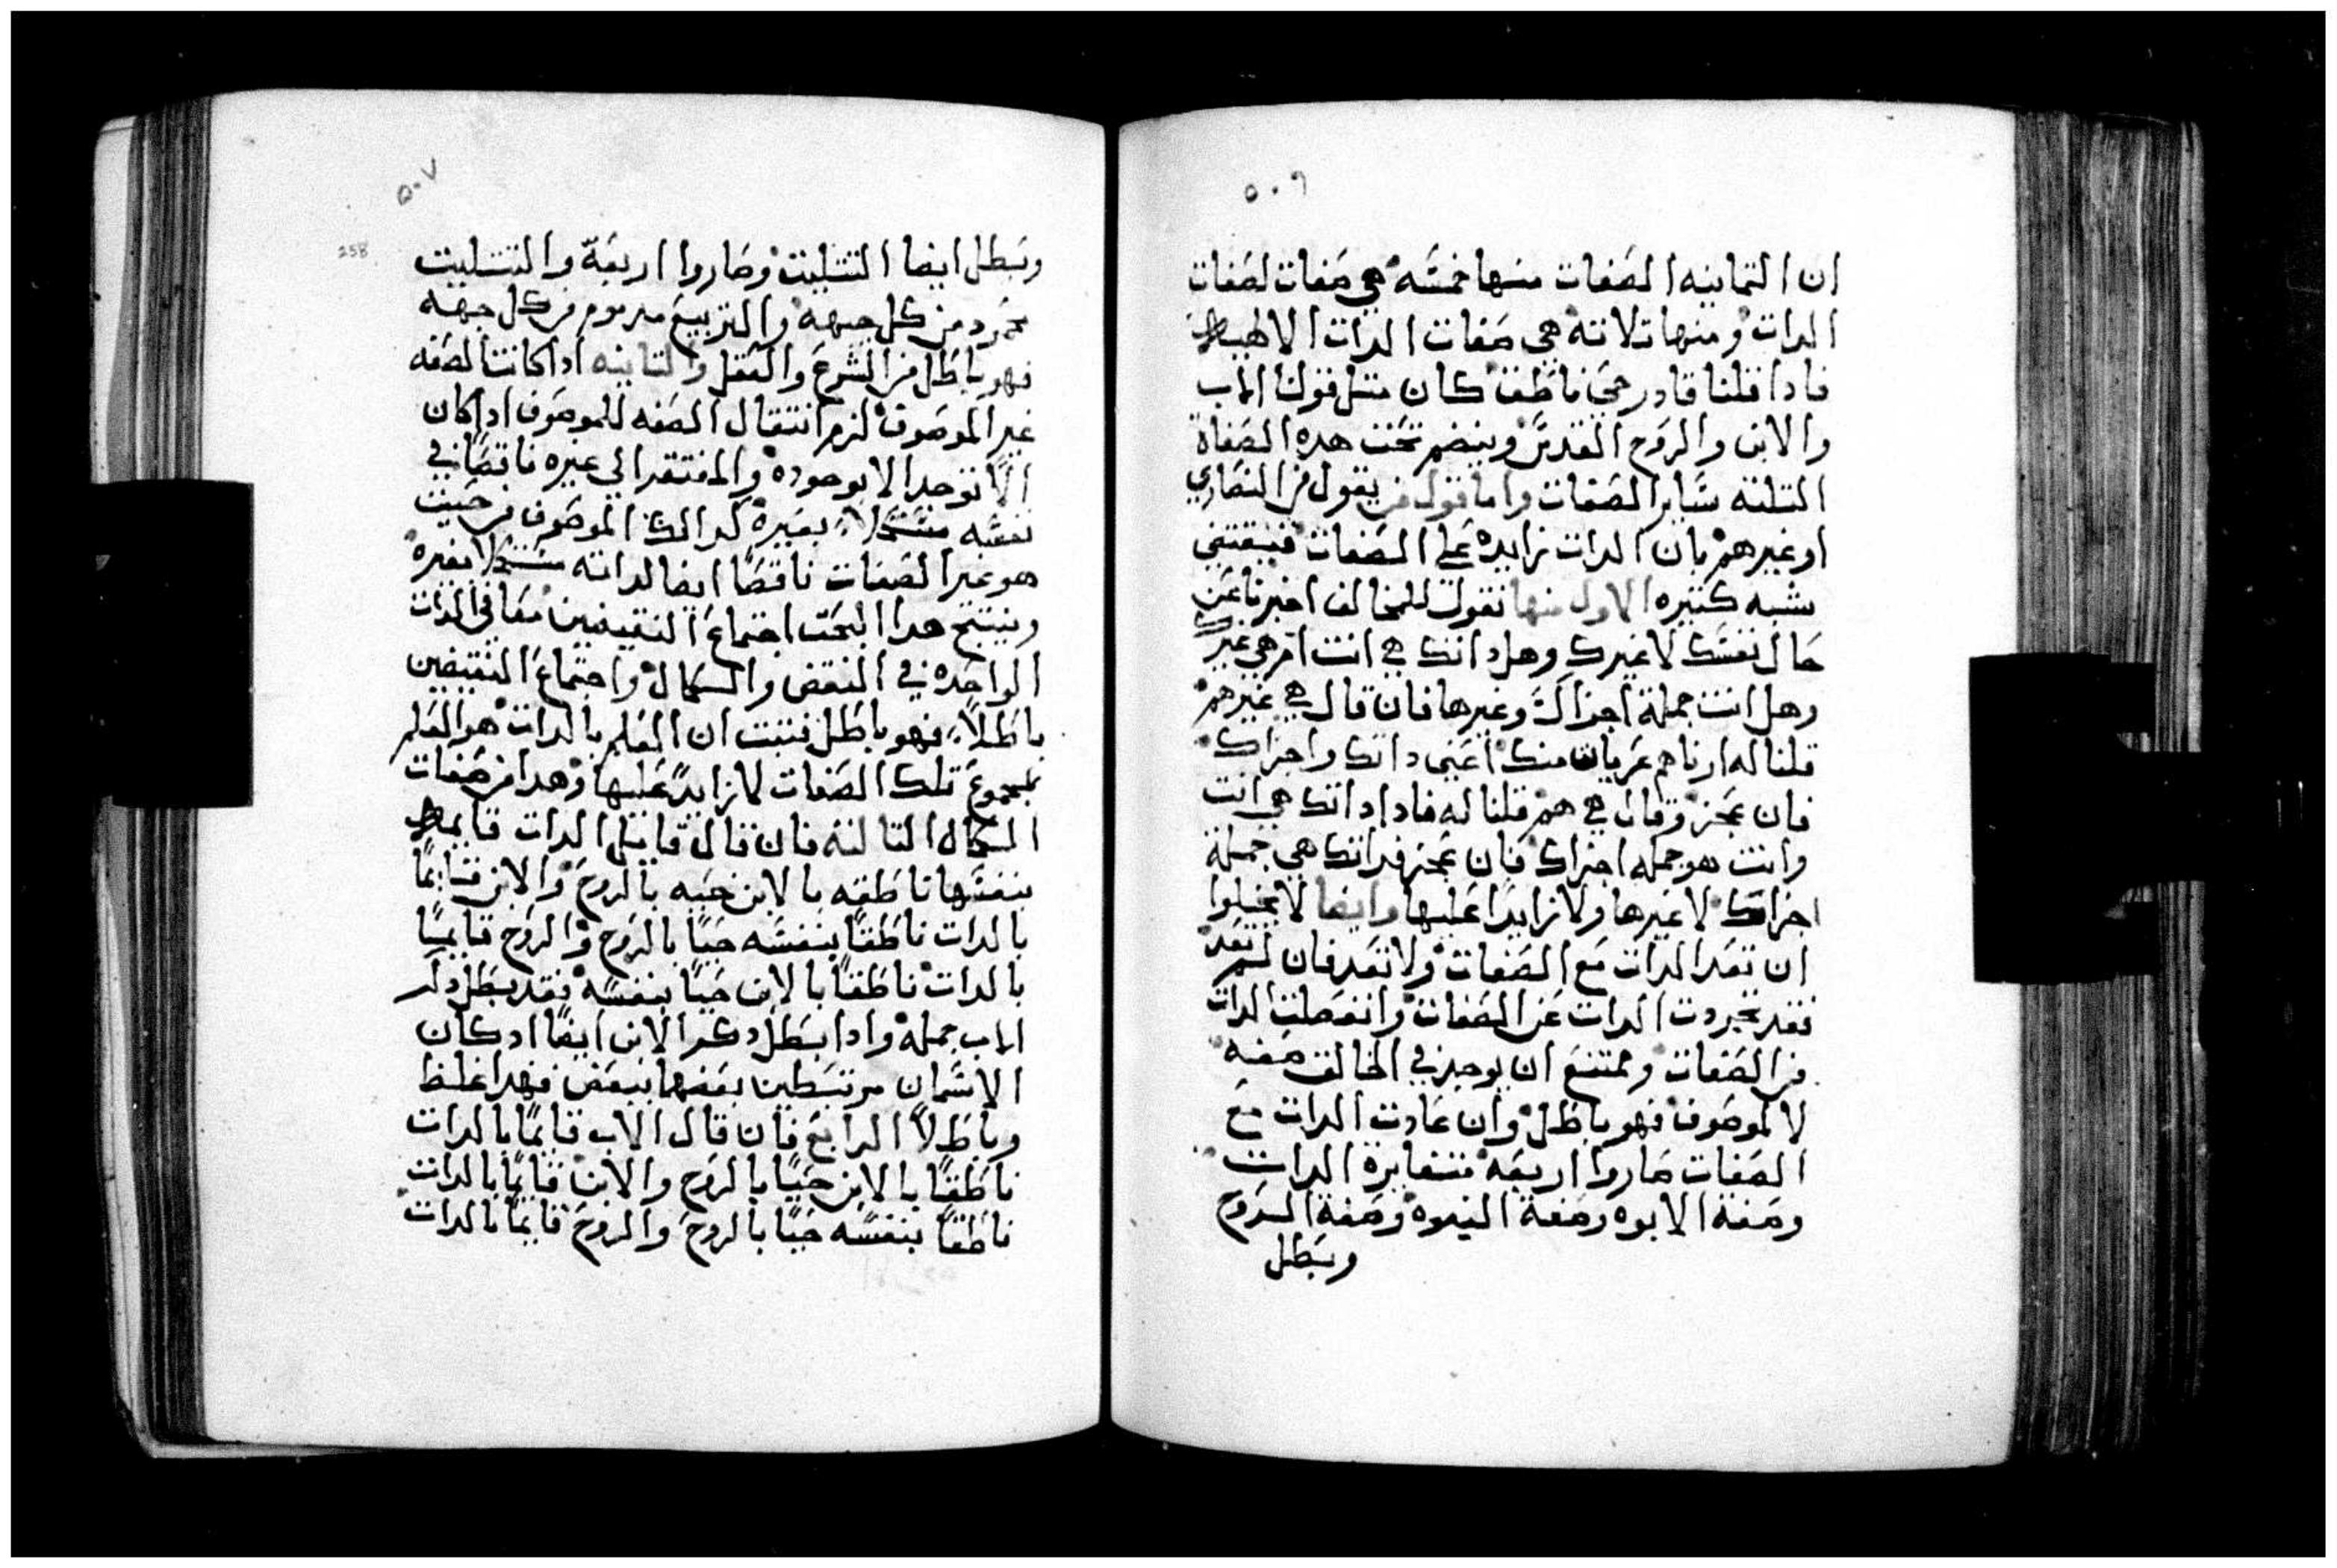 ٥٠٦
ان التمانيه الصفات منها خمسه هي صفات لصفات
الدات ومنها تلاته هي صفات الدات الالهيه
فادا قلنا قادر حي ناطق كان متل قولنا الاب
والابن والروح القدس وينضم تحت هده الصفاة
التلته ساير الصفات واما قول من يقول من النصاري
او غيرهم بان الدات زايده علي الصفات فيقتضي
شبه كتيره الاول منها نقول للمخالف اخبرنا عن
حال نفسك لا غيرك وهل داتك هي انت ام هي غيرك
وهل انت جملة اجزاك وغيرها فان قال هي غيرهم
قلنا له ارناهم عريان منك اعني داتك واجزاك
فان عجز وقال هي هم قلنا له فادا داتك هي انت
وانت هو جمله اجزاك فان عجز فداتك هي جملة
اجزاتك لا غيرها ولا زايدا عليها وايضا لا يخلوا
ان تعد الدات مع الصفات ولا تعد فان لم تعد
فقد تجردت الدات عن الصفات وانفصلت الدات
من الصفات وممتنع ان يوجد في الخالق صفه
لا لموصوف فهو باطل وان عادت الدات مع
الصفات صاروا اربعه متغايرة الدات
وصفة الابوه وصفة البنوه وصفة الروح
ويبطل
٥٠٧
258
ويبطل ايضا التتليت وصاروا اربعة والتتليت
محمود من كل جهه والتربيع مدموم من كل جهه
فهو باطل من الشرع والعقل والتانيه ادا كانت الصفه
غير الموصوف لزم انتقال الصفه للموصوف ادا كان
الا توجد الا بوجوده والمفتقر الي غيره ناقصا في
نفسه مستكملا بغيره كدالك الموصوف من حيت
هو غير الصفات ناقصا ايضا لداته مستكملا بغيره
وينتج هدا البحت اجتماع النقيضين معا في الدات
الواحده في النقص والكمال واجتماع النقيضين
باطلا فهو باطل فتبت ان العلم بالدات هو العلم
بمجموع تلك الصفات لا زايد عليها وهدا من صفات
الكمال التالته فان قال قايل الدات قايمه
بنفسها ناطقه بالابن حيه بالروح والابن قايما
بالدات ناطقا بنفسه حيا بالروح والروح قايما
بالدات ناطقا بالابن حيا بنفسه فقد بطل دكر
الاب جمله وادا بطل دكر الابن ايضا اد كان
الاسمان مرتبطين بعضهما ببعض فهدا غلط
وباطلا الرابع فان قال الاب قايما بالدات
ناطقا بالابن حيا بالروح والابن قايما بالدات
ناطقا بنفسه حيا بالروح والروح قايما بالدات